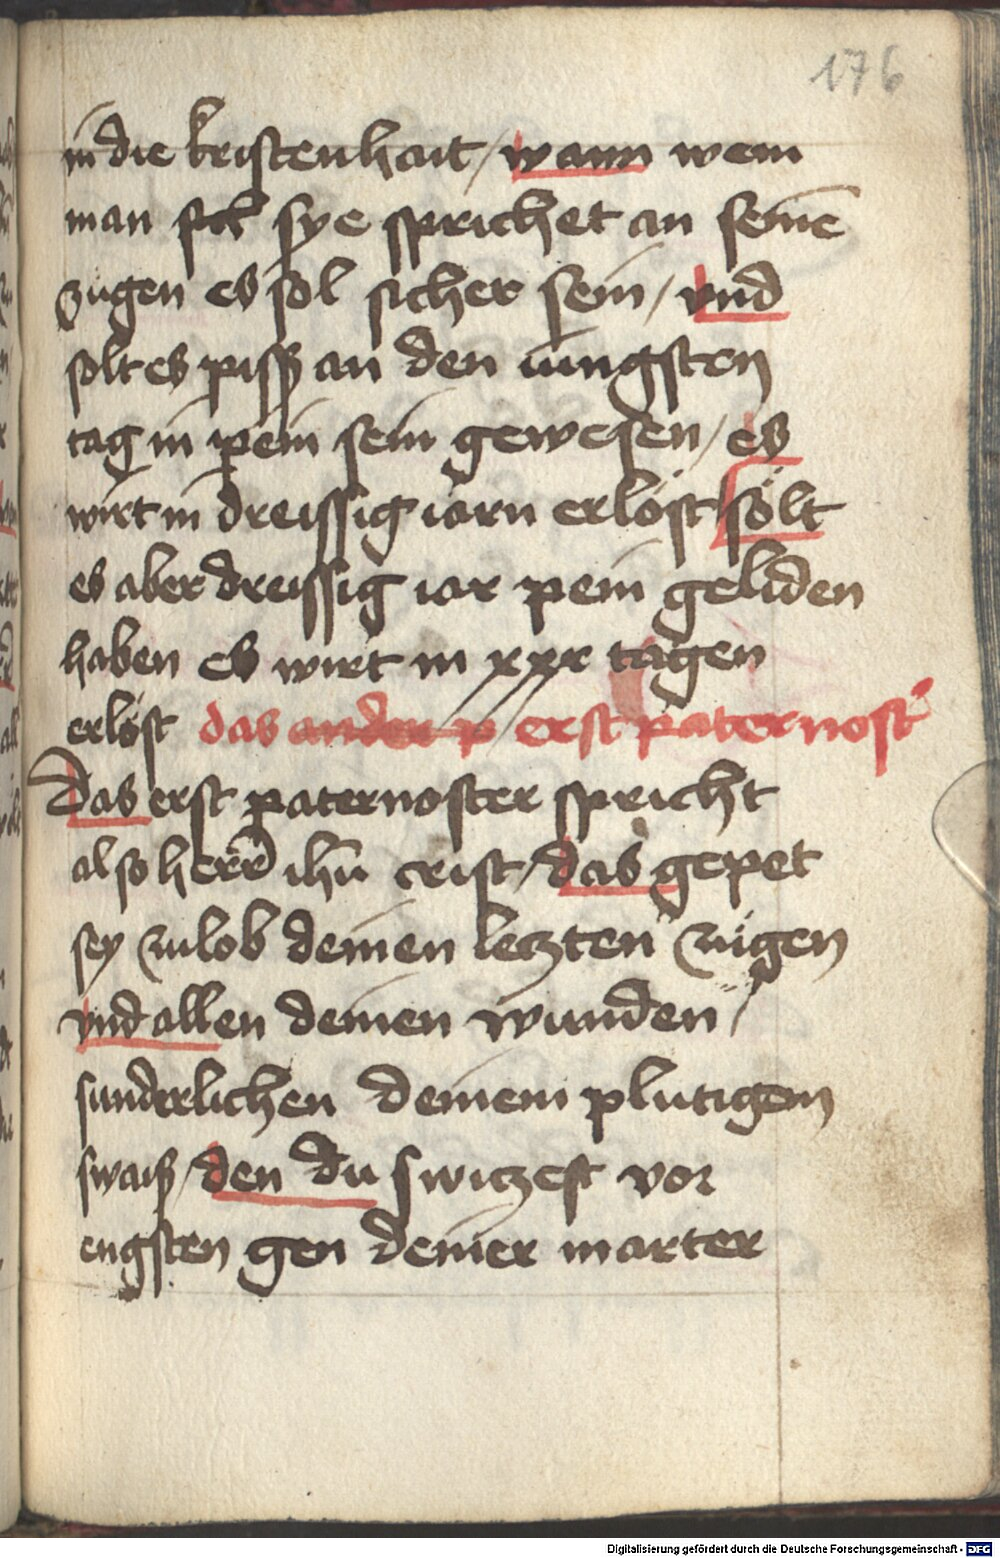 176
in die kristenhait / wann wem
man sich sye sprichet an seinē
zugen es sol sicher sein / vnd
solt es piss an den iungsten
tag in pein sein gewesen / es
wirt in dreissig iarn erlöst sölt
es aber dreissig iar pein geliden
haben es wirt in xxx tagen
erlöst das ander p erst paternost
Das erst paternoster spricht
also herr̄ ihū crist / das gepet
sey zulob deinen letzten zügen
vnd allen deinen wunden /
sunderlichen deinem plutigem
swaiß / den du switzest vor
engsten gen deiner marter
Digitalisierung gefördert durch die Deutsche Forschungsgemeinschaft - DFG